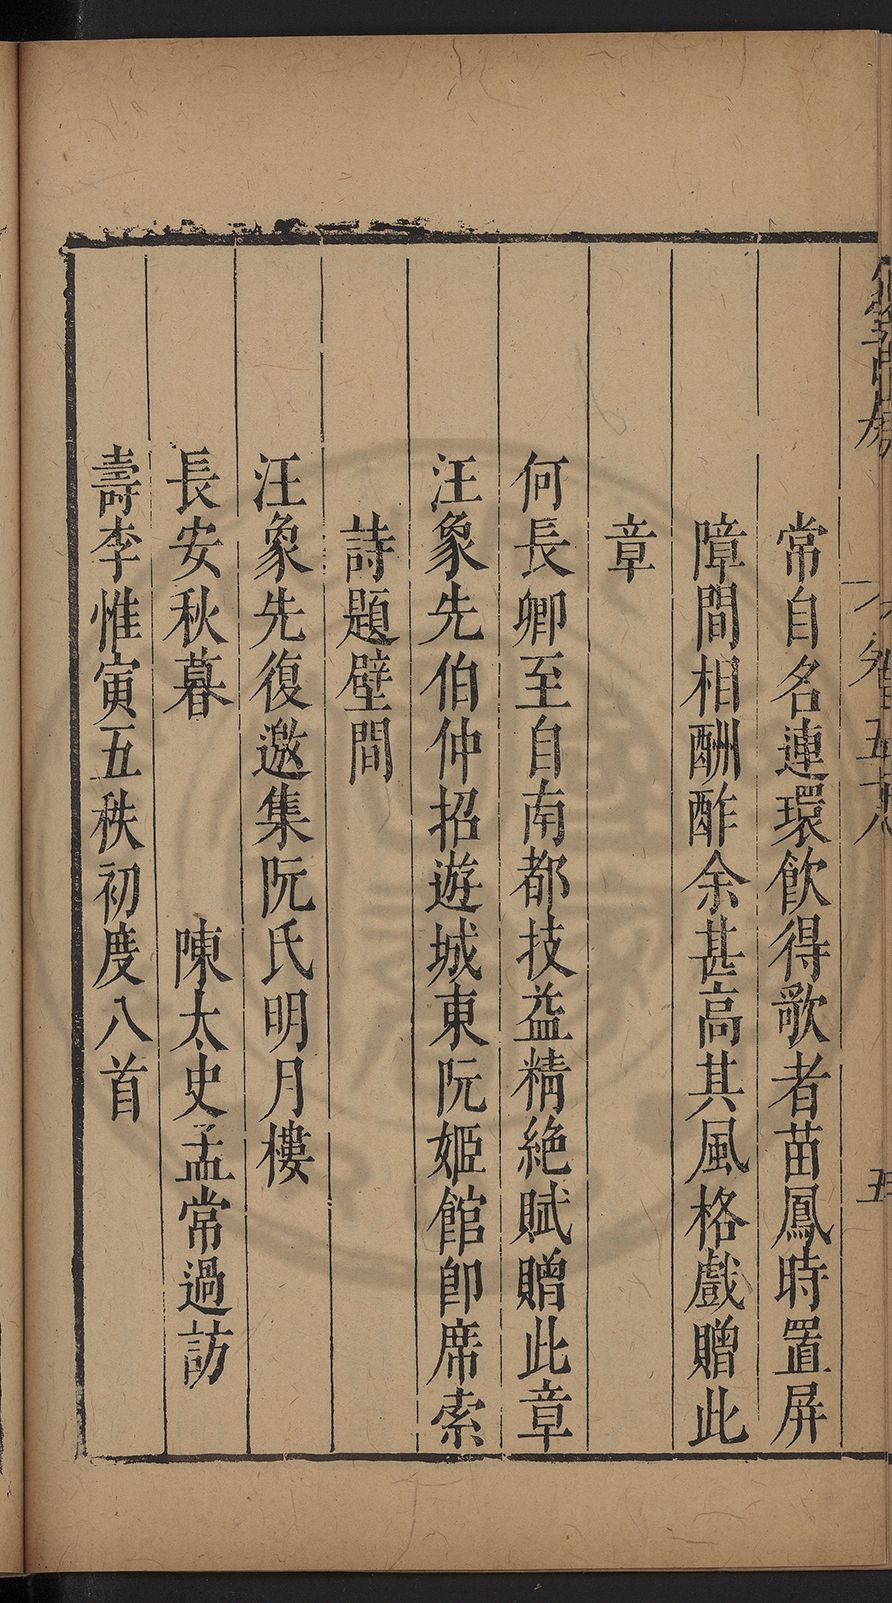 常自名連環飲得歌者苗鳳時置屏
障間相酬酢余甚高其風格戲贈此
章
何長卿至自南都技益精絶賦贈此章
汪象先伯仲招遊城東阮姬館卽席索
詩題壁間
汪象先復邀集阮氏明月樓
長安秋暮　陳太史孟常過訪
壽李惟寅五秩初度八首